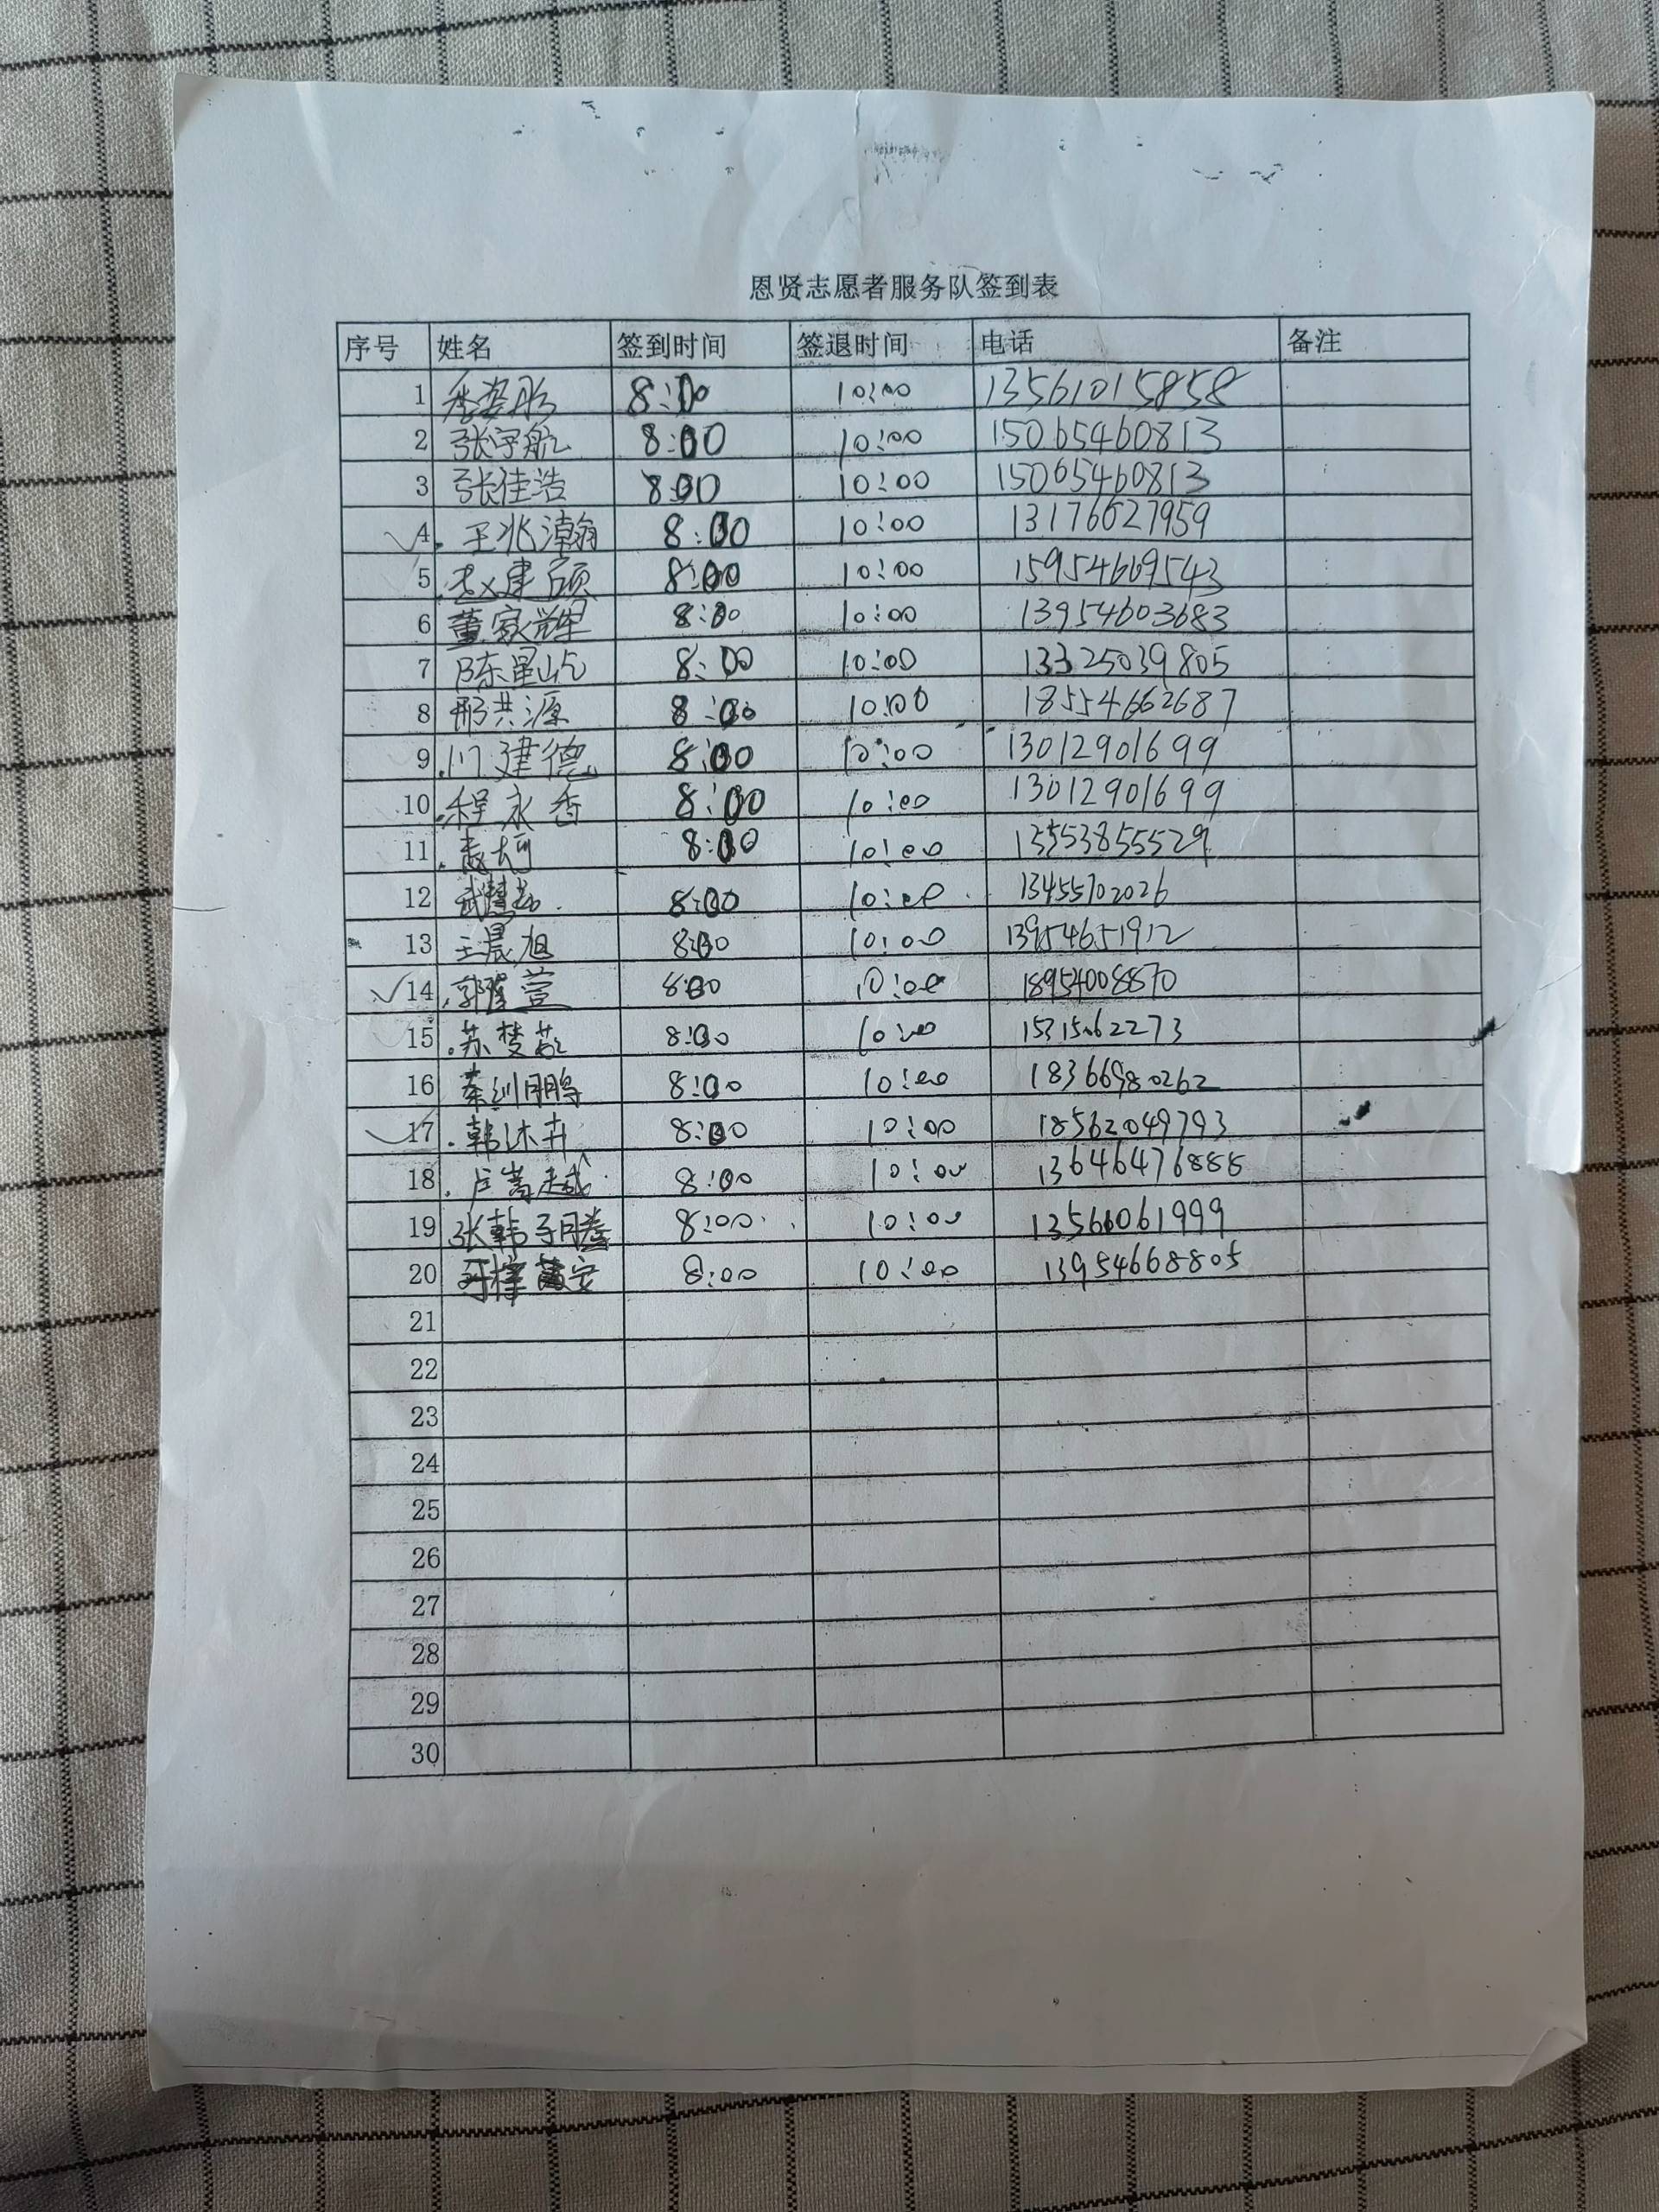 恩贤志愿者服务队签到表
序号 姓名 签到时间 签退时间 电话 备注
1 8:00 10:00 13561015858
2 张宇航 8:00 10:00 15065460813
3 张佳浩 8:00 10:00 15065460813
4 王兆瀚 8:00 10:00 13176627959
5 赵建硕 8:00 10:00 15954669543
6 董家辉 8:00 10:00 13954603683
7 陈星屹 8:00 10:00 13325039805
8 邢洪源 8:00 10:00 18554662687
9 建德 8:00 10:00 13012901699
10 程永香 8:00 10:00 13012901699
11 8:00 10:00 13553855529
12 8:00 10:00 13455702026
13 王晨旭 8:00 10:00 13954651912
14 8:00 10:00 18954008870
15 苏梦 8:00 10:00 15315062273
16 8:00 10:00 18366980262
17 韩沐卉 8:00 10:00 18562049793
18 8:00 10:00 13646476888
19 张韩子腾 8:00 10:00 13566061999
20 8:00 10:00 13954668805
21
22
23
24
25
26
27
28
29
30